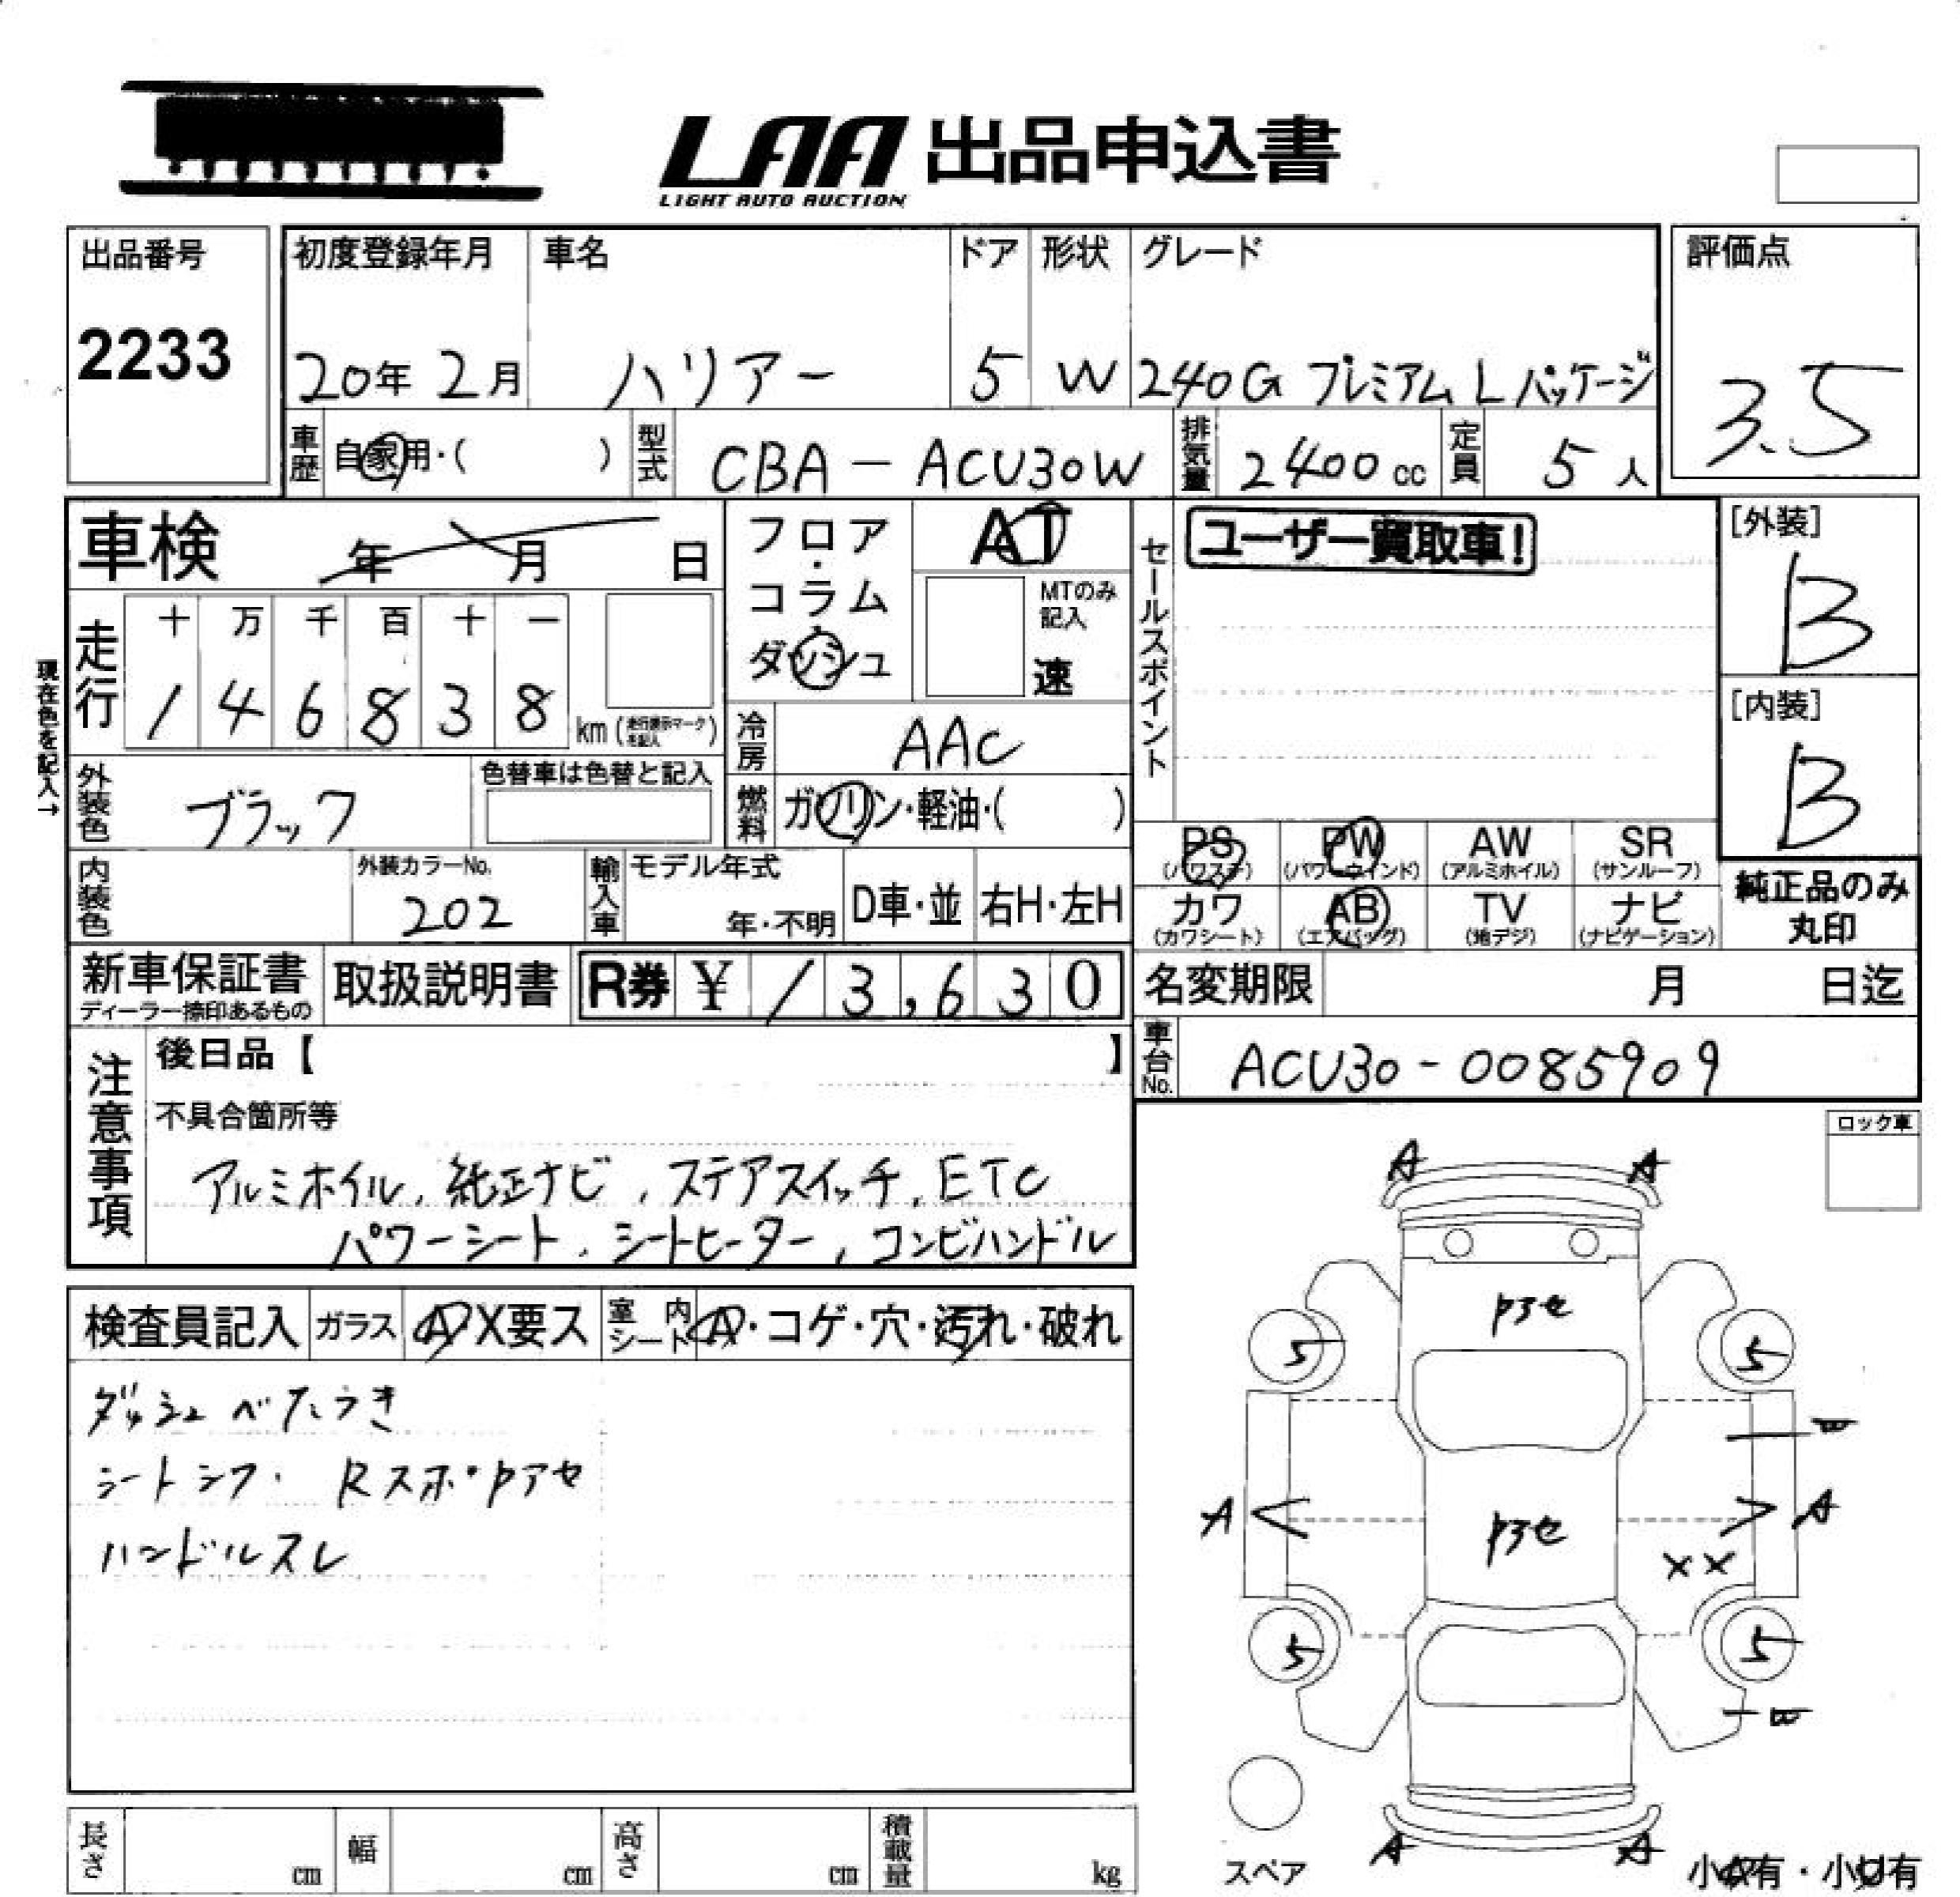 LAA 出品申込書
LIGHT AUTO AUCTION
出品番号
2233
初度登録年月 車名 ドア 形状 グレード
20年 2月 ハリアー 5 W 240G プレミアム Lパッケージ
評価点
3.5
車歴 自家用・( ) 型式 CBA-ACU30W 排気量 2400cc 定員 5人
車検 年 月 日
フロア・コラム・ダッシュ
AT
MTのみ記入
速
セールスポイント
ユーザー買取車!
[外装]
B
[内装]
B
現在色を記入→
走行
十 万 千 百 十 一
1 4 6 8 3 8 km (走行表示マークを記入)
冷房 AAC
外装色 ブラック 色替車は色替と記入
燃料 ガソリン・軽油・( )
PS PW AW SR
(パワステ) (パワーウインド) (アルミホイル) (サンルーフ)
カワ AB TV ナビ
(カワシート) (エアバッグ) (地デジ) (ナビゲーション)
純正品のみ
丸印
内装色 外装カラーNo. 202 輸入車 モデル年式 年・不明 D車・並 右H・左H
新車保証書
ディーラー捺印あるもの
取扱説明書 R券 ¥ 13,630
名変期限 月 日迄
車台No. ACU30-0085909
注意事項
後日品【 】
不具合箇所等
アルミホイル、純正ナビ、ステアスイッチ、ETC
パワーシート、シートヒーター、コンビハンドル
ロック車
検査員記入 ガラス A X要ス 室内シート A・コゲ・穴・汚れ・破れ
ダッシュベタうき
シートシワ・ Rスポ・Pアセ
ハンドルスレ
A A
Pアセ
5 5
A A
Pアセ
XX
5 5
A A
スペア
小A有・小U有
長さ cm 幅 cm 高さ cm 積載量 kg